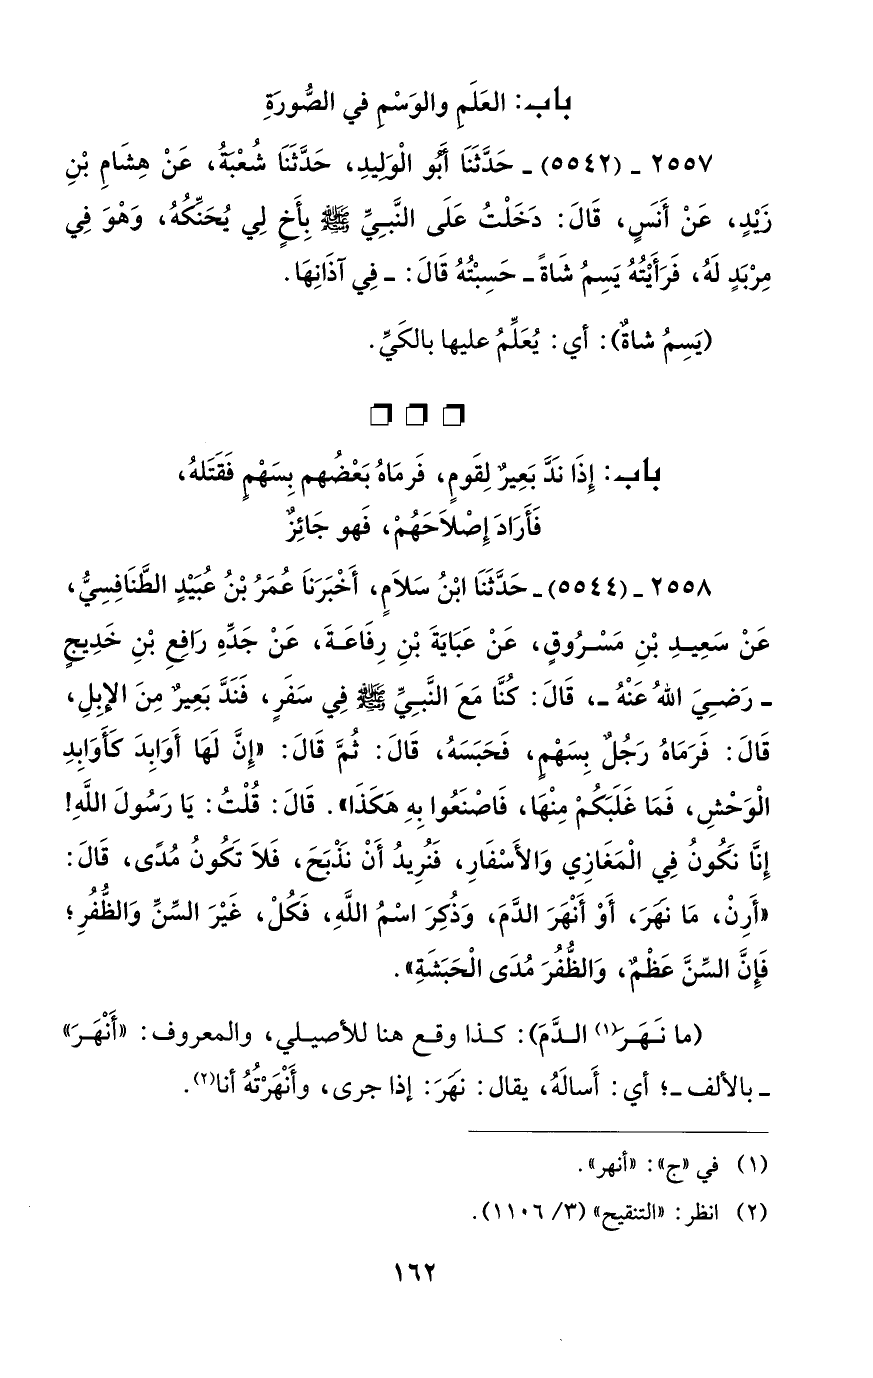 باب: العَلَمِ والوَسْمِ في الصُّورَةِ
٢٥٥٧ ـ (٥٥٤٢) ـ حَدَّثَنَا أَبُو الْوَلِيدِ، حَدَّثَنَا شُعْبَةُ، عَنْ هِشَامِ بْنِ
زَيْدٍ، عَنْ أَنَسٍ، قَالَ: دَخَلْتُ عَلَى النَّبِيِّ ﷺ بِأَخٍ لِي يُحَنِّكُهُ، وَهْوَ فِي
مِرْبَدٍ لَهُ، فَرَأَيْتُهُ يَسِمُ شَاةً ـ حَسِبْتُهُ قَالَ: ـ فِي آذَانِهَا.
(يَسِمُ شاةً): أي: يُعَلِّمُ عليها بالكَيِّ.
❐ ❐ ❐
باب: إِذَا نَدَّ بَعِيرٌ لِقَومٍ، فَرمَاهُ بَعْضُهم بِسَهْمٍ فَقَتَلهُ،
فَأَرَادَ إِصْلاَحَهُمْ، فَهو جَائِزٌ
٢٥٥٨ ـ (٥٥٤٤) ـ حَدَّثَنَا ابْنُ سَلاَمٍ، أَخْبَرَنَا عُمَرُ بْنُ عُبَيْدٍ الطَّنَافِسِيُّ،
عَنْ سَعِيدِ بْنِ مَسْرُوقٍ، عَنْ عَبَايَةَ بْنِ رِفَاعَةَ، عَنْ جَدِّهِ رَافِعِ بْنِ خَدِيجٍ
ـ رَضِيَ اللهُ عَنْهُ ـ، قَالَ: كُنَّا مَعَ النَّبِيِّ ﷺ فِي سَفَرٍ، فَنَدَّ بَعِيرٌ مِنَ الإِبِلِ،
قَالَ: فَرَمَاهُ رَجُلٌ بِسَهْمٍ، فَحَبَسَهُ، قَالَ: ثُمَّ قَالَ: «إِنَّ لَهَا أَوَابِدَ كَأَوَابِدِ
الْوَحْشِ، فَمَا غَلَبَكُمْ مِنْهَا، فَاصْنَعُوا بِهِ هَكَذَا». قَالَ: قُلْتُ: يَا رَسُولَ اللَّهِ!
إِنَّا نَكُونُ فِي الْمَغَازِي وَالأَسْفَارِ، فَنُرِيدُ أَنْ نَذْبَحَ، فَلاَ تَكُونُ مُدًى، قَالَ:
«أَرِنْ، مَا نَهَرَ، أَوْ أَنْهَرَ الدَّمَ، وَذُكِرَ اسْمُ اللَّهِ، فَكُلْ، غَيْرَ السِّنِّ وَالظُّفُرِ؛
فَإِنَّ السِّنَّ عَظْمٌ، وَالظُّفُرَ مُدَى الْحَبَشَةِ».
(ما نَهَرَ(١) الدَّمَ): كذا وقع هنا للأصيلي، والمعروف: «أَنْهَرَ»
ـ بالألف ـ؛ أي: أَسالَهُ، يقال: نَهَرَ: إذا جرى، وأَنْهَرْتُهُ أنا(٢).
(١) في «ج»: «أنهر».
(٢) انظر: «التنقيح» (٣/ ١١٠٦).
١٦٢